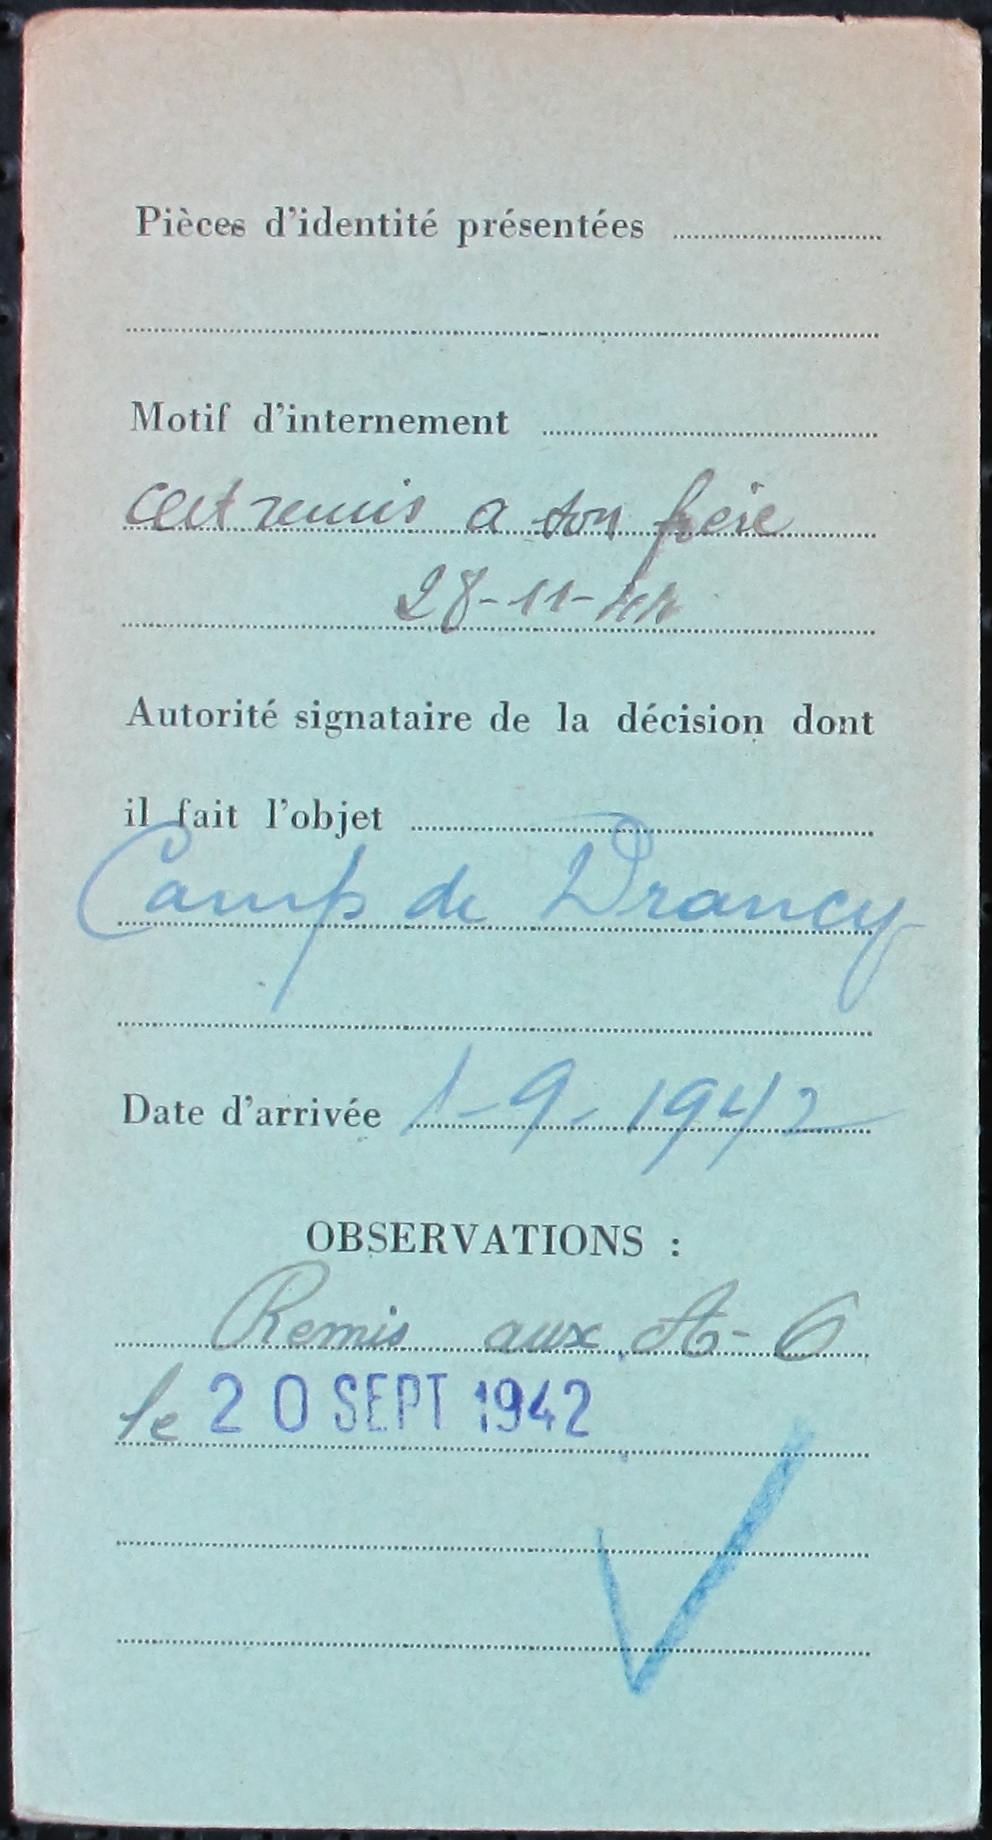 Pièces d'identité présentées
Motif d'internement
Cert remis a son frère
28-11-44
Autorité signataire de la décision dont
il fait l'objet
Camp de Drancy
Date d'arrivée 1-9-1942
OBSERVATIONS :
Remis aux A-O
le 20 SEPT 1942